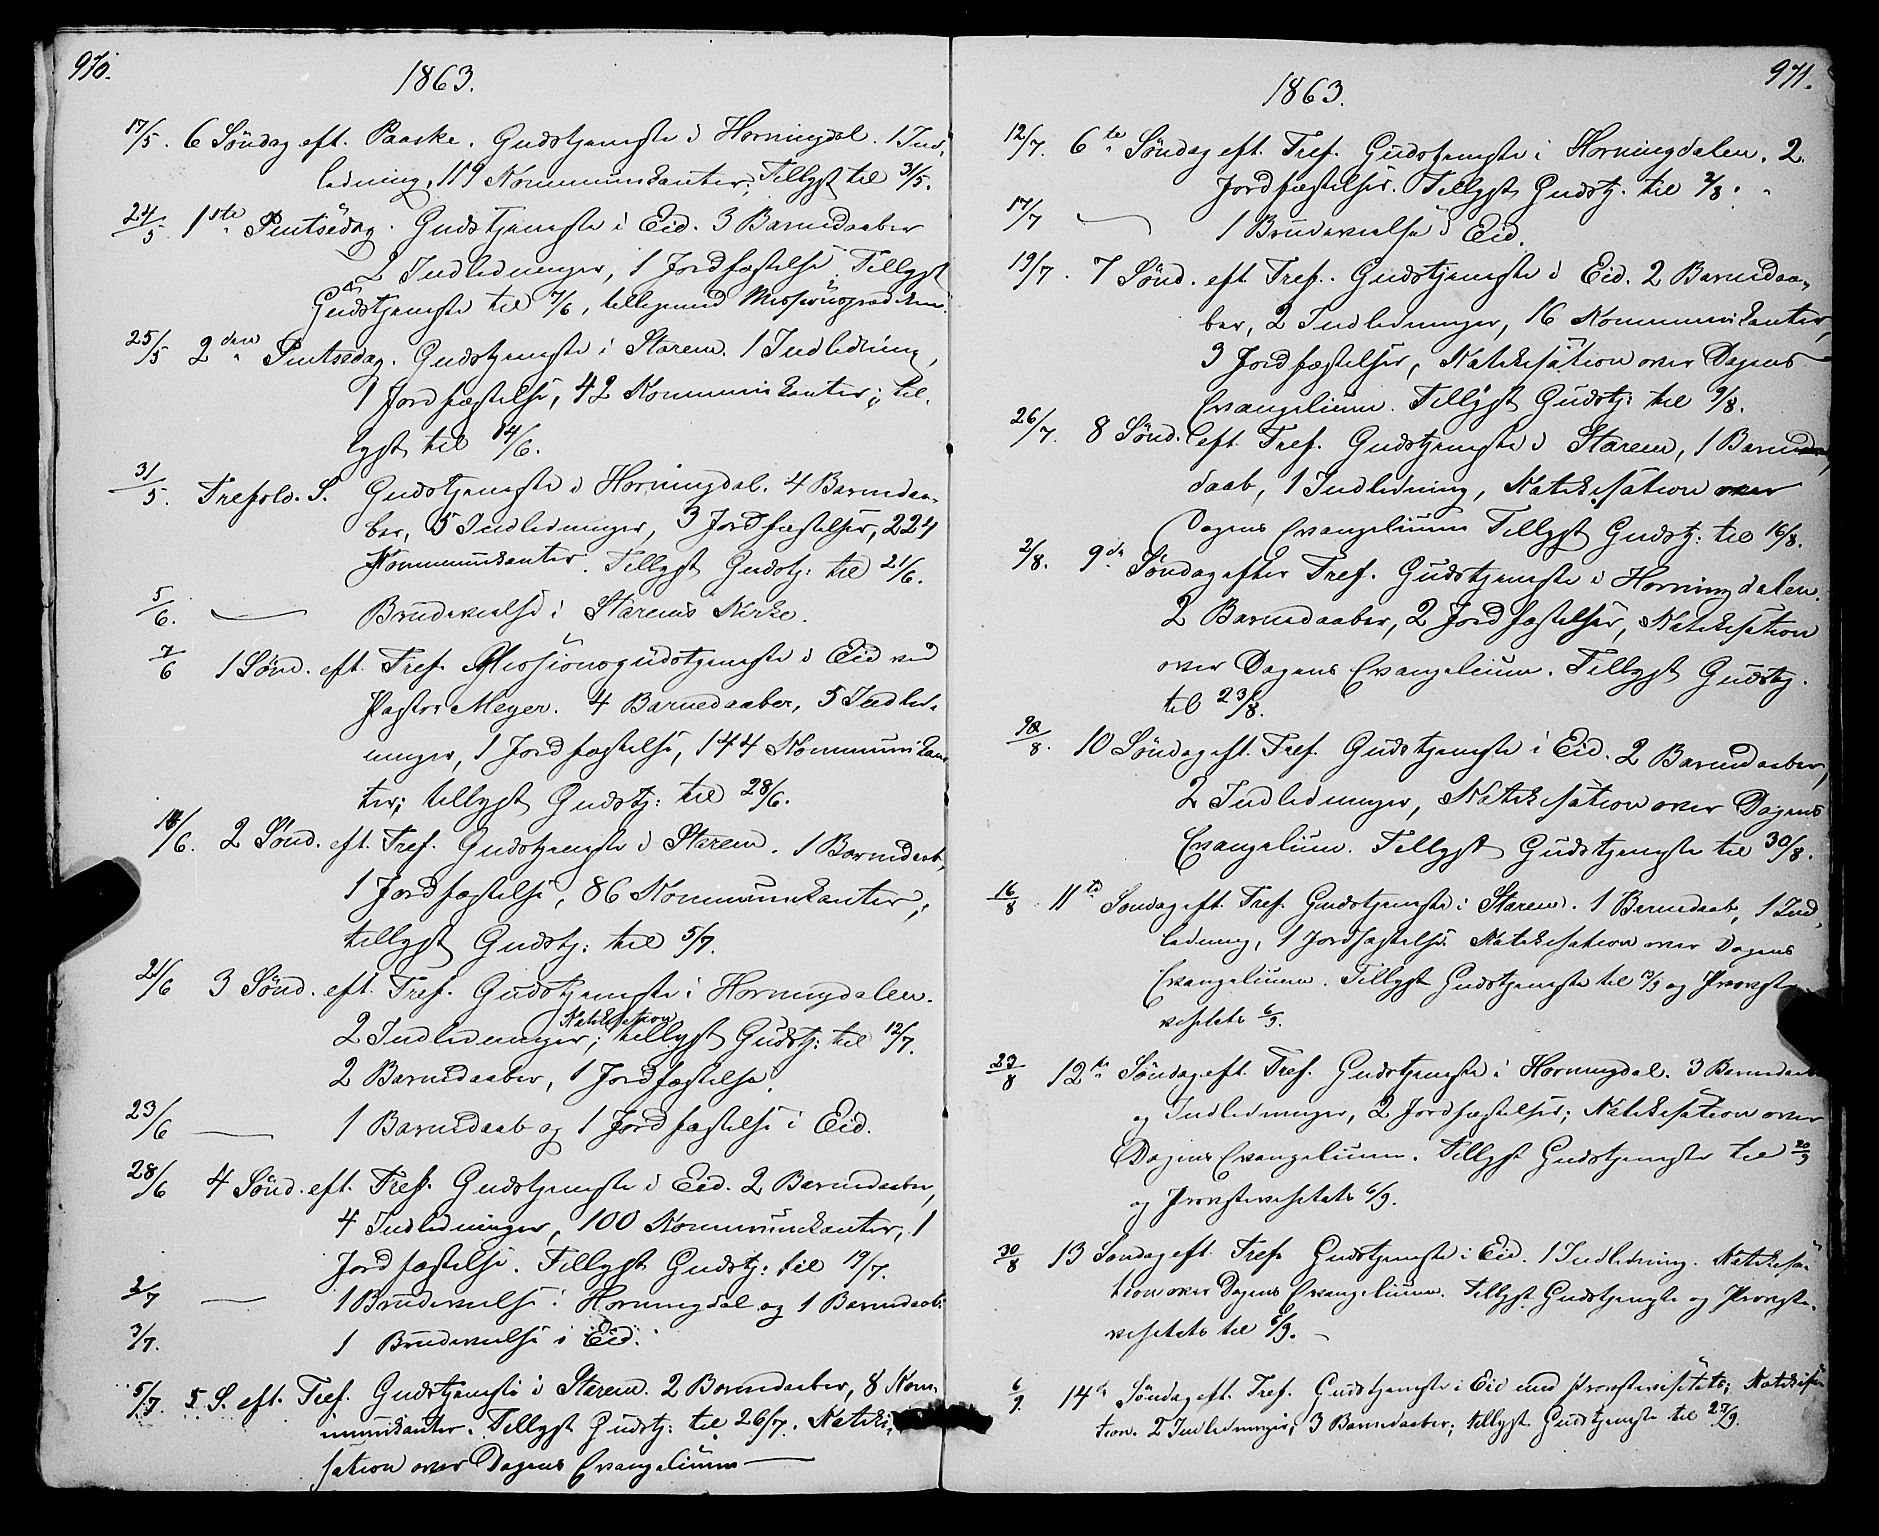 970.
1863.
17/5. 6 Söndag eft. Paaske. Gudstjeneste i Horningdal. 1 Ind-
ledning, 119 Kommunikanter; Tillyst til 31/5.
24/5 1ste Pintsedag. Gudstjeneste i Eid. 3 Barnedaaber
2 Indledninger, 1 Jordfæstelse. Tillyst
Gudstjeneste til 7/6, tilligemed Missionsprædiken.
25/5 2den Pintsedag. Gudstjeneste i Starem. 1 Indledning,
1 Jordfæstelse, 42 Kommunikanter; til-
lyst til 14/6.
31/5. Trefold. S. Gudstjeneste i Horningdal. 4 Barnedaa-
ber, 5 Indledninger, 3 Jordfæstelser, 224
Kommunikanter. Tillyst Gudstj: til 21/6.
5/6. — Brudevielse i Starems Kirke.
7/6 1 Sönd. eft. Tref. Missionsgudstjeneste i Eid ved
Pastor Meyer. 4 Barnedaaber, 5 Indled-
ninger, 1 Jordfæstelse, 144 Kommunikan-
ter; tillyst Gudstj: til 28/6.
14/6. 2 Sönd. eft. Tref. Gudstjeneste i Starem. 1 Barnedaab,
1 Jordfæstelse, 86 Kommunikanter;
tillyst Gudstj: til 5/7.
21/6 3 Sönd. eft. Tref. Gudstjeneste i Horningdalen.
Katekisation
2 Indledninger; tillyst Gudstj: til 12/7.
2 Barnedaaber, 1 Jordfæstelse.
23/6 — 1 Barnedaab og 1 Jordfæstelse i Eid.
28/6 4 Sönd. eft. Tref. Gudstjeneste i Eid. 2 Barnedaaber,
4 Indledninger, 100 Kommunikanter, 1
Jordfæstelse. Tillyst Gudstj: til 19/7.
2/7 — 1 Brudevielse i Horningdal og 1 Barnedaab.
3/7. 1 Brudevielse i Eid.
5/7. 5. S. eft. Tref. Gudstjeneste i Starem. 2 Barnedaaber, 8 Kom-
munikanter. Tillyst Gudstj: til 26/7. Kateki-
sation over Dagens Evangelium —
971.
1863.
12/7. 6te Söndag eft. Tref. Gudstjeneste i Horningdalen. 2
Jordfæstelser. Tillyst Gudstj. til 2/8.
17/7 — 1 Brudevielse i Eid.
19/7. 7 Sönd. eft. Tref. Gudstjeneste i Eid. 2 Barnedaa-
ber, 2 Indledninger, 16 Kommunikanter,
3 Jordfæstelser, Katekisation over Dagens
Evangelium. Tillyst Gudstj: til 9/8.
26/7. 8 Sönd. eft. Tref. Gudstjeneste i Starem, 1 Barne-
daab, 1 Indledning, Katekisation over
Dagens Evangelium Tillyst Gudstj: til 16/8.
2/8. 9de Söndag efter Tref. Gudstjeneste i Horningdalen.
2 Barnedaaber, 2 Jordfæstelser, Katekisation
over Dagens Evangelium. Tillyst Gudstj.
til 23/8.
9/8. 10 Söndag eft. Tref. Gudstjeneste i Eid. 2 Barnedaaber,
2 Indledninger, Katekisation over Dagens
Evangelium. Tillyst Gudstjeneste til 30/8.
16/8 11te Söndag eft. Tref. Gudstjeneste i Starem. 1 Barnedaab, 1 Ind-
ledning, 1 Jordfæstelse. Katekisation over Dagens
Evangelium. Tillyst Gudstjeneste til 13/9 og Provste-
visitats 6/9.
23/8 12te Söndag eft. Tref. Gudstjeneste i Horningdal. 3 Barnedaab
og Indledninger, 2 Jordfæstelser; Katekisation over
Dagens Evangelium. Tillyst Gudstjeneste til 20/9
og Provstevisitats 6/9.
30/8 13 Söndag eft. Tref. Gudstjeneste i Eid. 1 Indledning. Katekisa-
tion over Dagens Evangelium. Tillyst Gudstjeneste og Provste-
visitats til 6/9. —
6/9. 14de Söndag eft. Tref. Gudstjeneste i Eid med Provstevisitats; Katekisa-
tion. 2 Indledninger; 3 Barnedaaber; tillyst Gudstjeneste til 27/9.